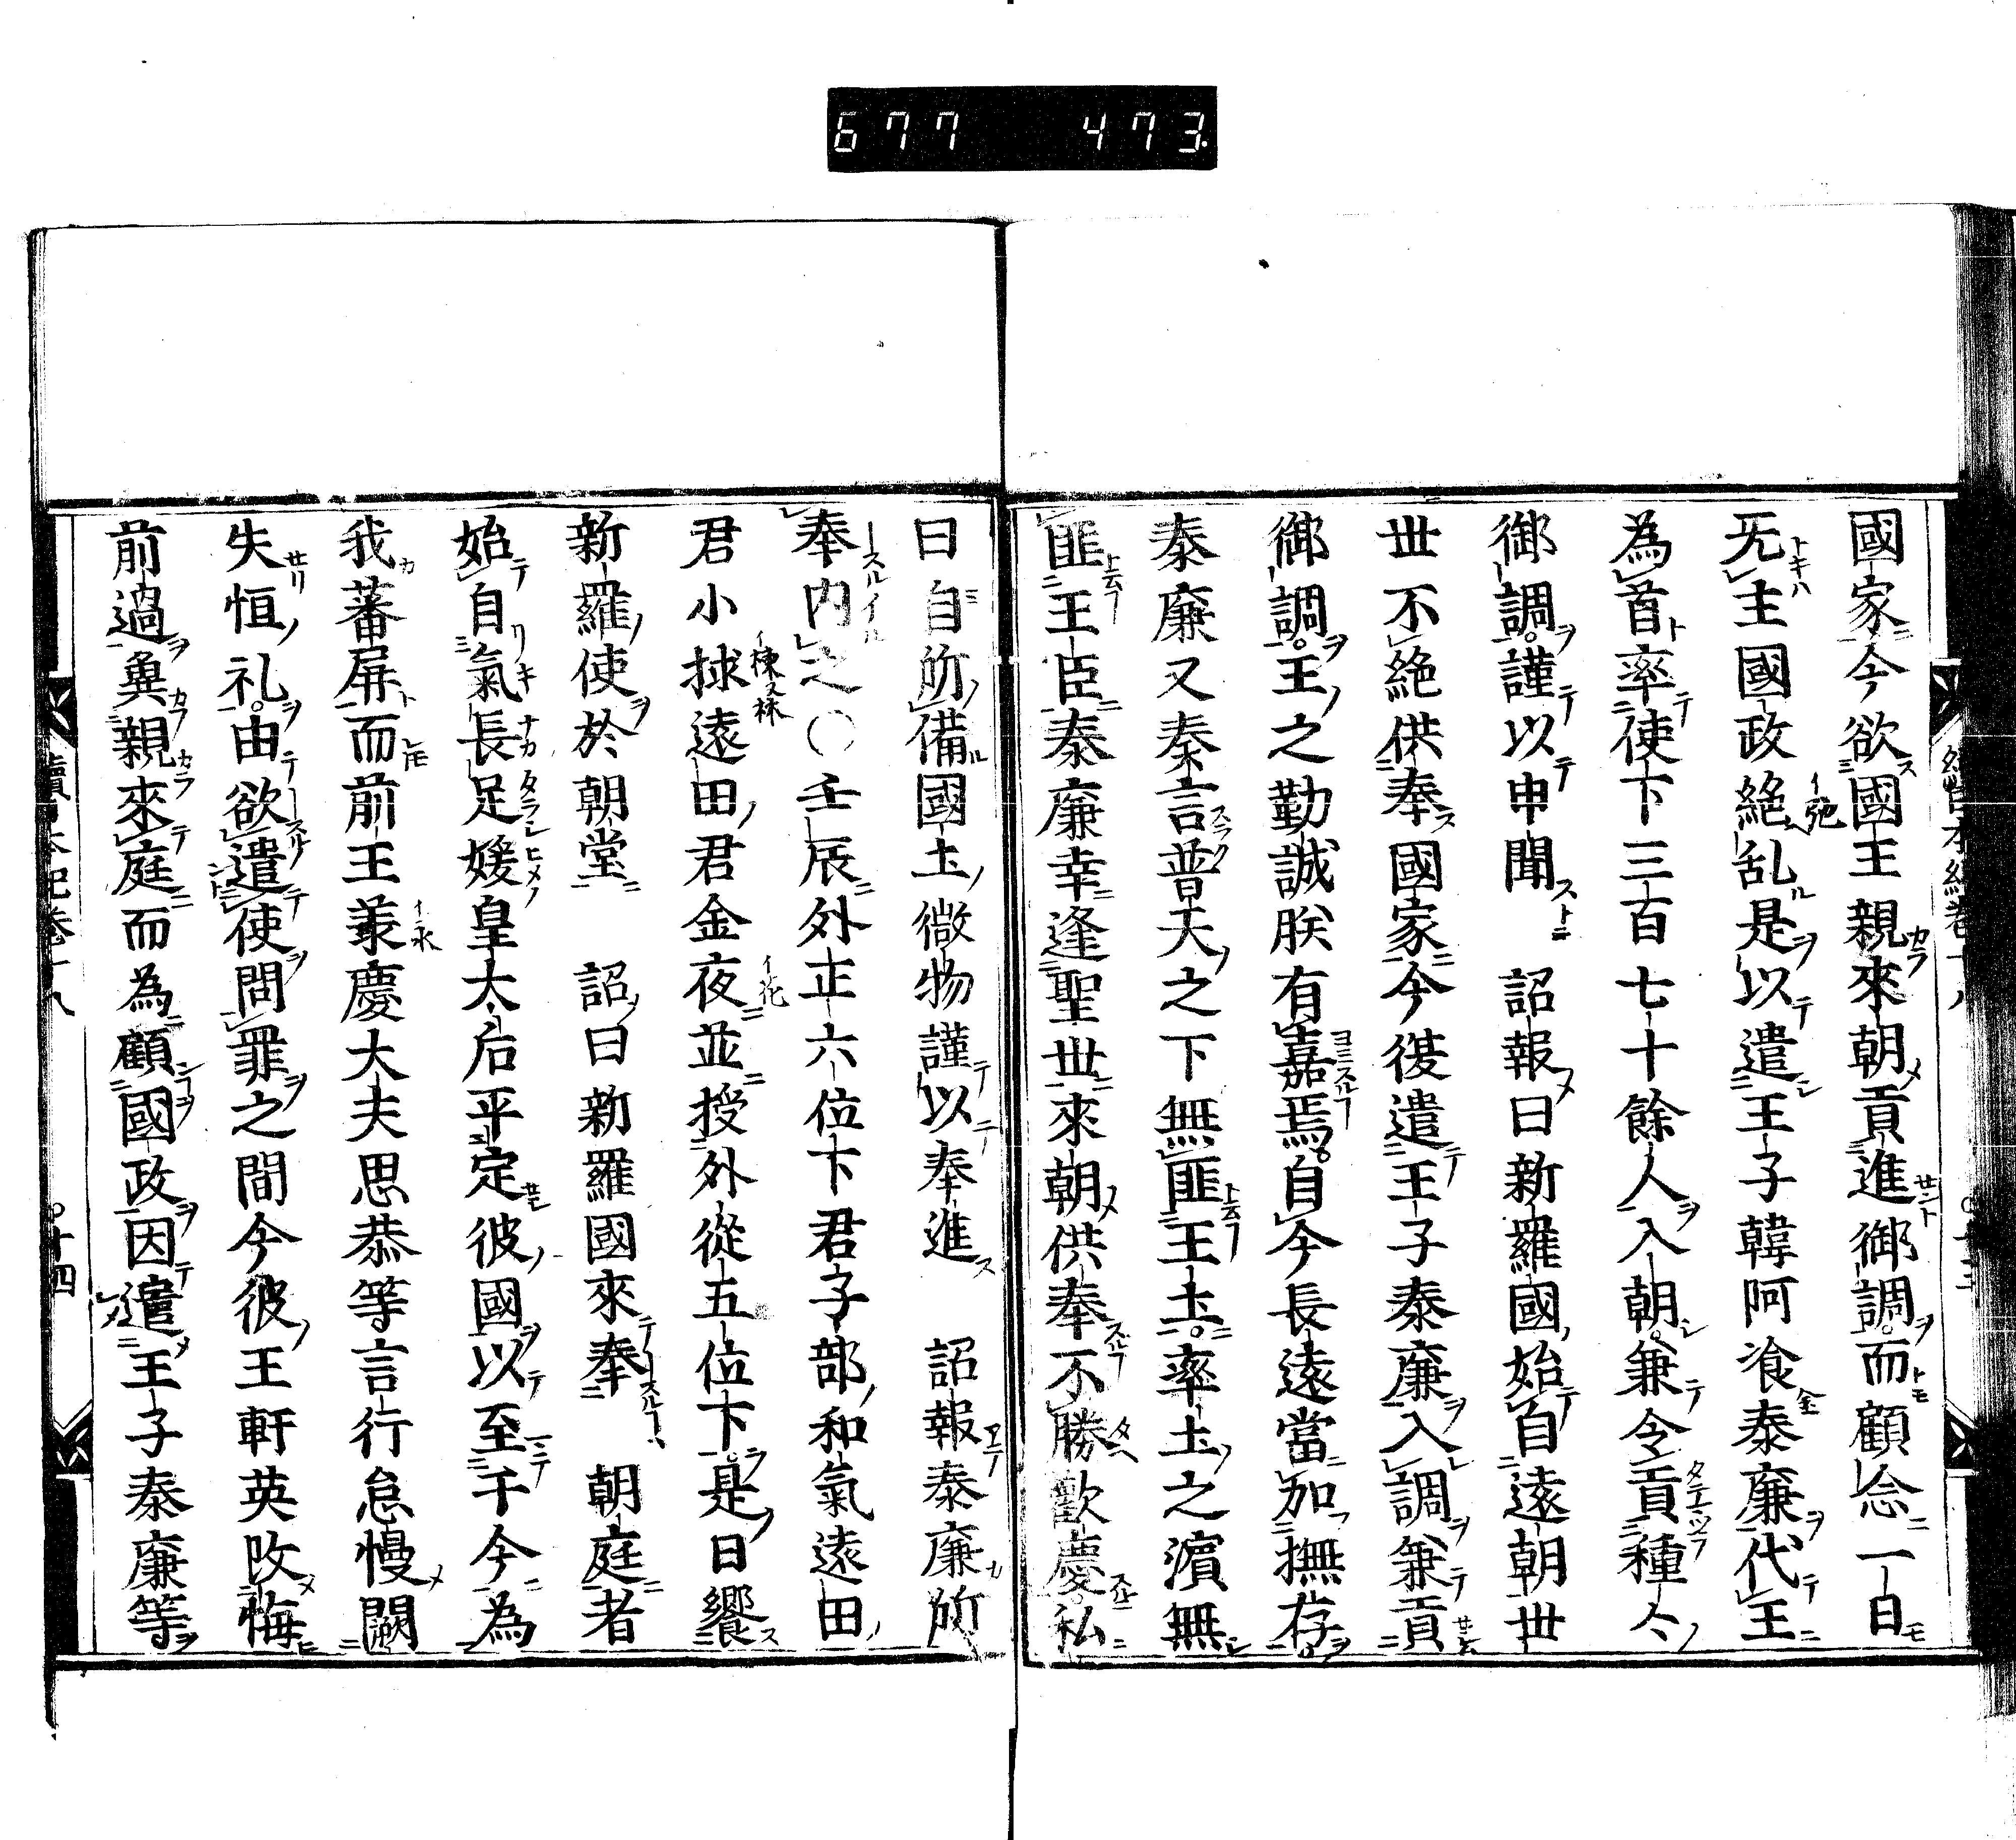 677 473
國家今欲國王親來朝貢進御調而顧念一日
旡主國政絕乱是以遣王子韓阿飡泰廉代王
為首率使下三百七十餘人入朝兼令貢種々
御調謹以申聞 詔報曰新羅國始自遠朝世
世不絕供奉國家今復遣王子泰廉入調兼貢
御調王之勤誠朕有嘉焉自今長遠當加撫存
泰廉又奏言普天之下無匪王土率土之濱無
匪王臣泰廉幸逢聖世來朝供奉不勝歡慶私
曰自所備國土微物謹以奉進 詔報泰廉所
奉內之○壬辰外正六位下君子部和氣遠田
君小捄遠田君金夜並授外從五位下是日饗
新羅使於朝堂 詔曰新羅國來奉 朝庭者
始自氣長足媛皇太后平定彼國以至于今為
我蕃屏而前王羕慶大夫思恭等言行怠慢闕
失恒礼由欲遣使問罪之間今彼王軒英改悔
前過冀親來庭而為顧國政因遣王子泰廉等
續日本紀卷十八
十四